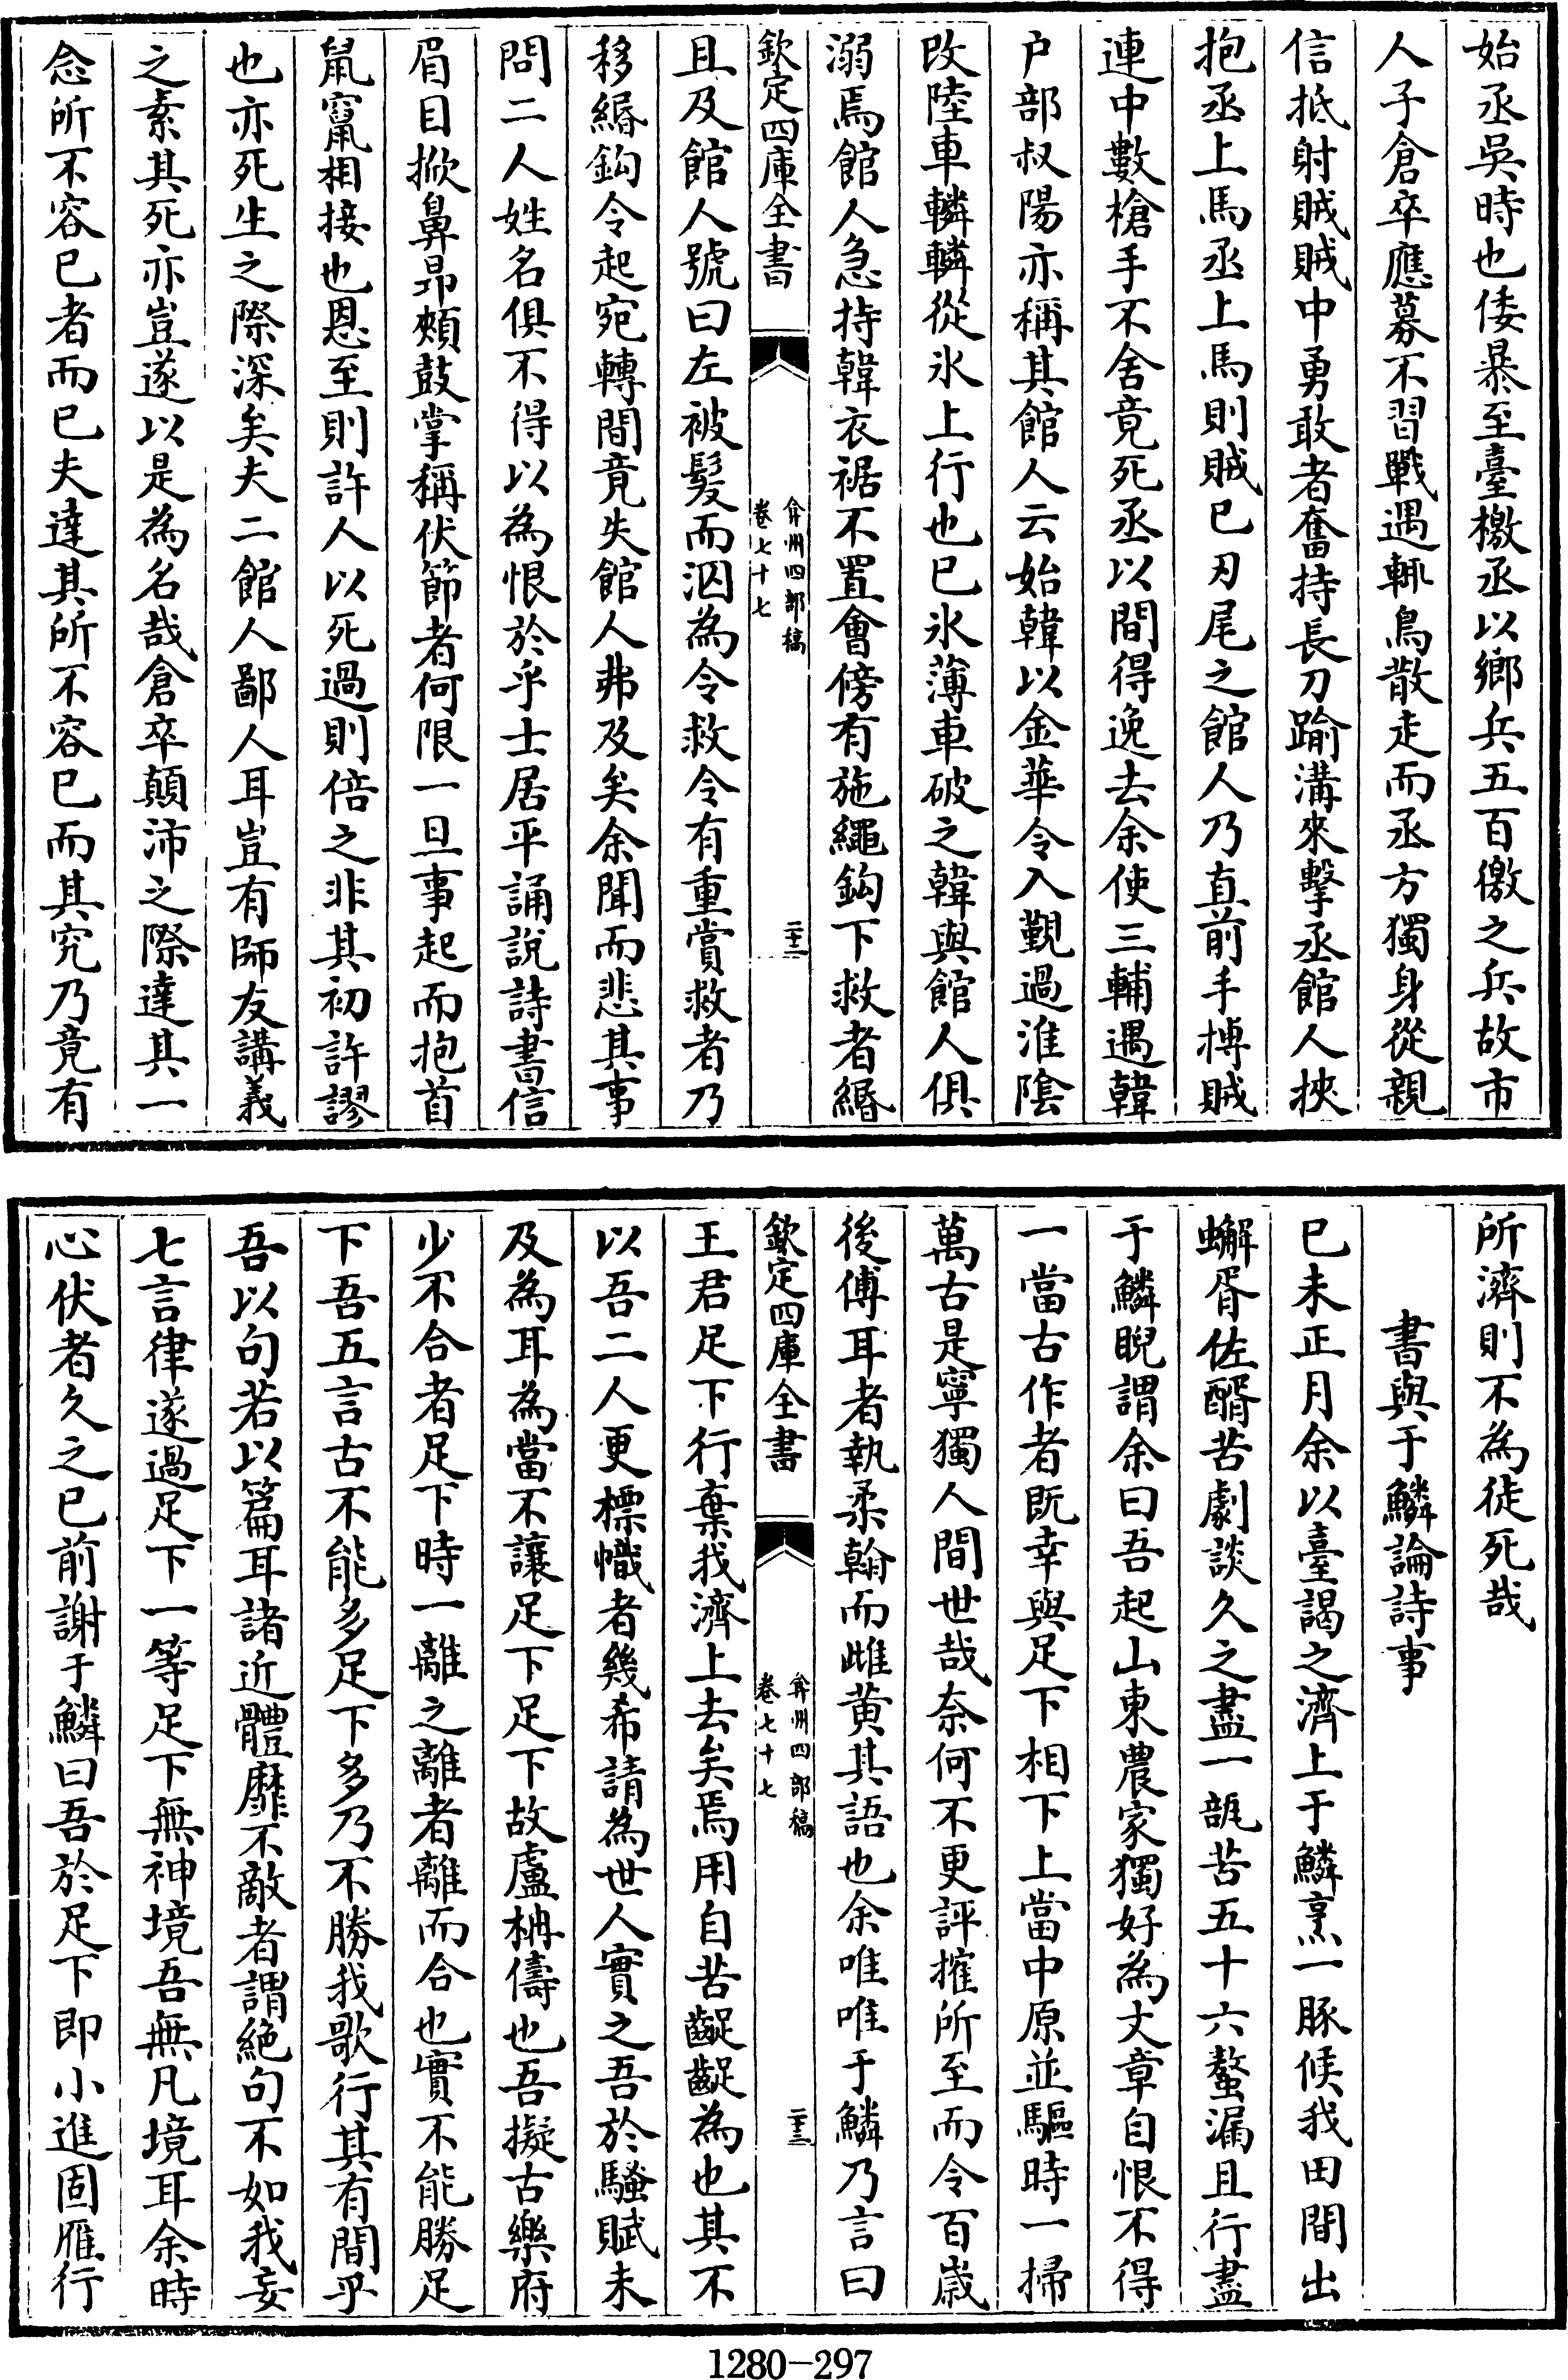 始丞吳時也倭暴至臺檄丞以鄉兵五百徼之兵故市
人子倉卒應募不習戰遇輒鳥散走而丞方獨身從親
信抵射賊賊中勇敢者奮持長刀踰溝來擊丞館人挾
抱丞上馬丞上馬則賊已刃尾之館人乃直前手搏賊
連中數槍手不舍竟死丞以間得逸去余使三輔遇韓
户部叔陽亦稱其館人云始韓以金華令入覲過淮陰
改陸車轔轔從氷上行也已氷薄車破之韓與館人俱
溺焉館人急持韓衣裾不置會傍有施繩鈎下救者緡
欽定四庫全書
弇州四部稿
卷七十七
二十二
且及館人號曰左被髮而泅為令救令有重賞救者乃
移緡鈎令起宛轉間竟失館人弗及矣余聞而悲其事
問二人姓名俱不得以為恨於乎士居平誦說詩書信
眉目掀鼻昻頰鼓掌稱伏節者何限一旦事起而抱首
鼠竄相接也恩至則許人以死過則倍之非其初許謬
也亦死生之際深矣夫二館人鄙人耳豈有師友講義
之素其死亦豈遂以是為名哉倉卒顛沛之際達其一
念所不容已者而已夫達其所不容已而其究乃竟有
所濟則不為徒死哉
書與于鱗論詩事
已未正月余以臺謁之濟上于鱗烹一豚候我田間出
蠏胥佐醑苦劇談久之盡一瓻苦五十六螯漏且行盡
于鱗睨謂余曰吾起山東農家獨好為文章自恨不得
一當古作者既幸與足下相下上當中原並驅時一掃
萬古是寧獨人間世哉奈何不更評搉所至而令百歲
後傅耳者執柔翰而雌黄其語也余唯唯于鱗乃言曰
欽定四庫全書
弇州四部稿
卷七十七
二十三
王君足下行棄我濟上去矣焉用自苦齪齪為也其不
以吾二人更標幟者幾希請為世人實之吾於騷賦未
及為耳為當不讓足下足下故盧柟儔也吾擬古樂府
少不合者足下時一離之離者離而合也實不能勝足
下吾五言古不能多足下多乃不勝我歌行其有間乎
吾以句若以篇耳諸近體靡不敵者謂絶句不如我妄
七言律遂過足下一等足下無神境吾無凡境耳余時
心伏者久之已前謝于鱗曰吾於足下即小進固雁行
1280-297